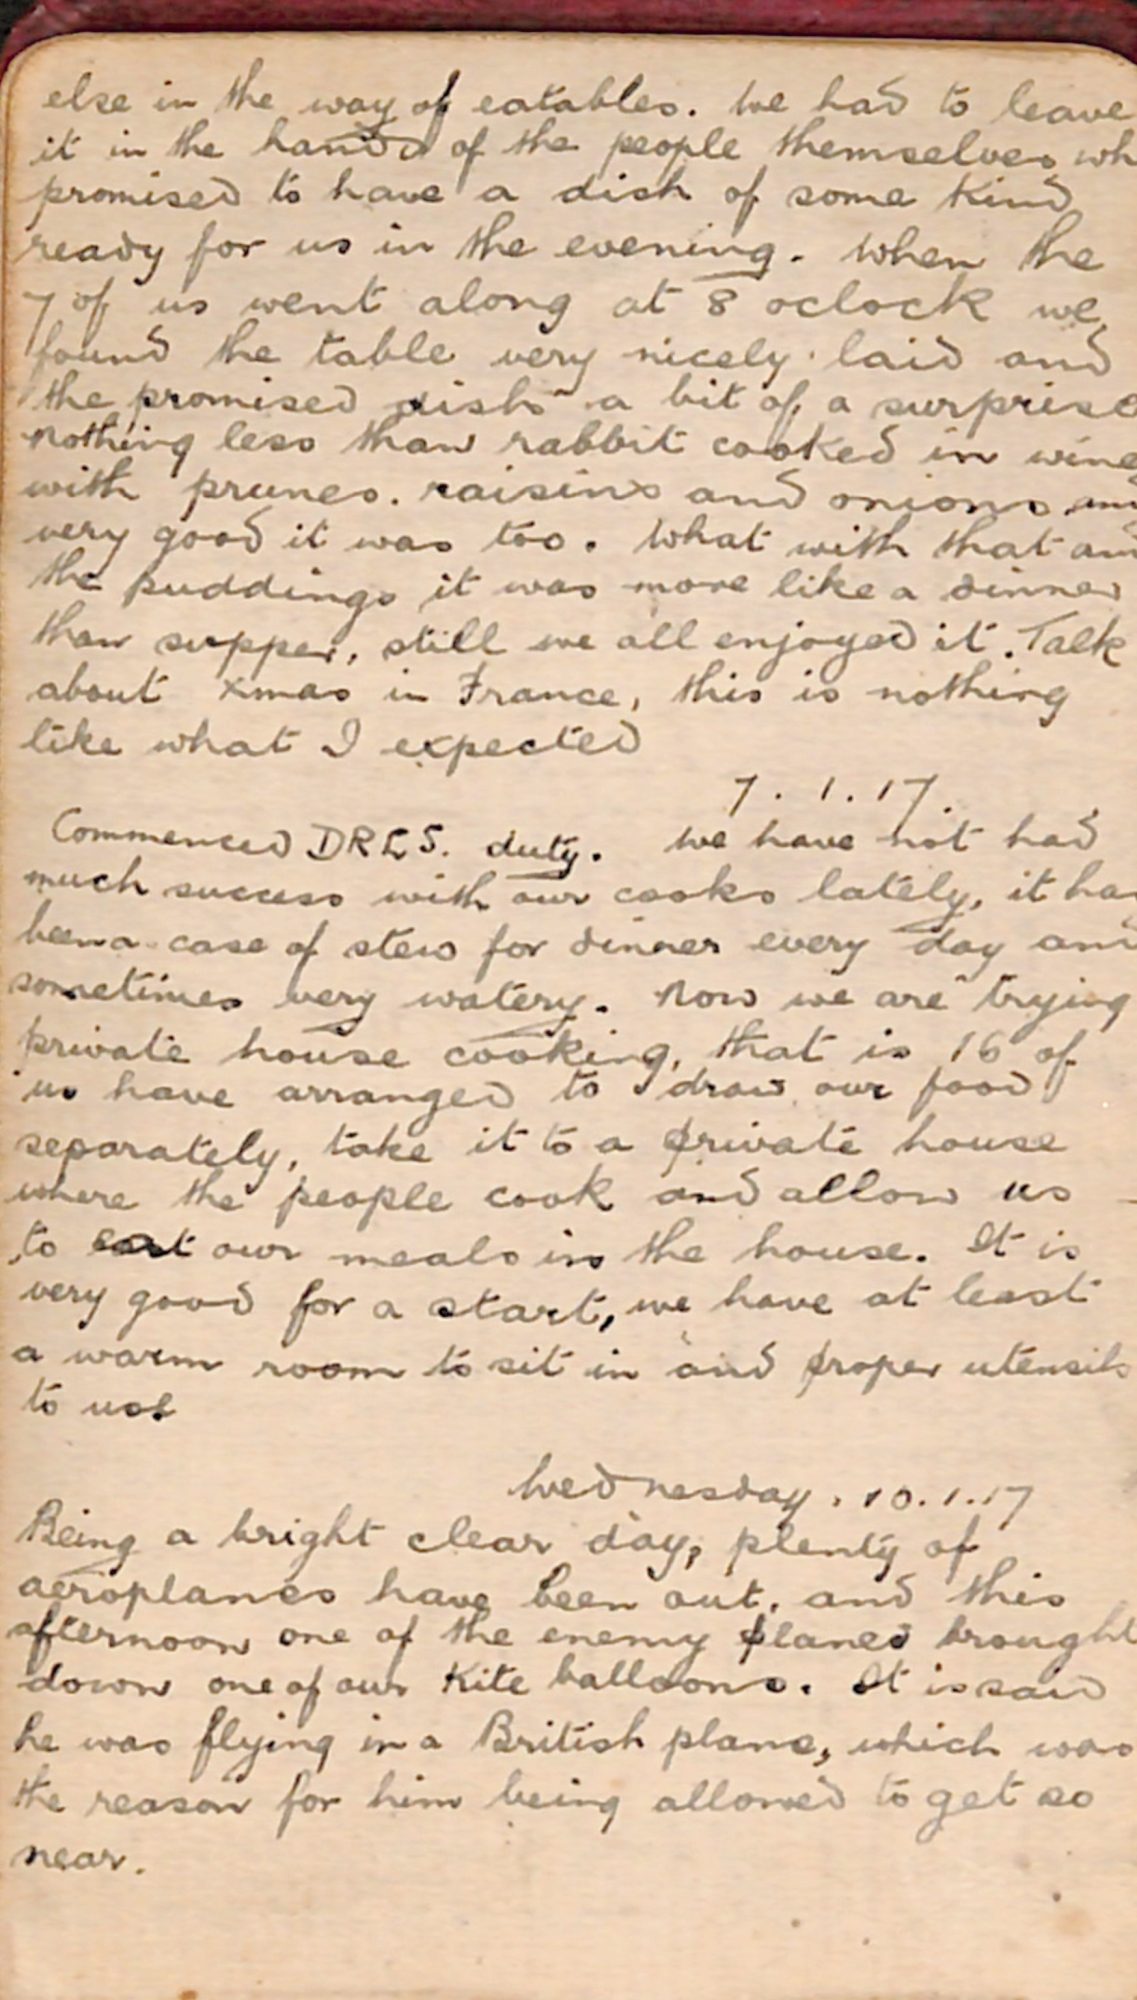 else in the way of eatables. We had to leave
it in the hands of the people themselves, wh
promised to have a dish of some kind
ready for us in the evening. When the
7 of us went along at 8 oclock we
found the table very nicely laid and
the promised dish a bit of a surprise
nothing less than rabbit cooked in wine
with prunes. raisins and onions and
very good it was too. What with that and
the puddings it was more like a dinner
than supper, still we all enjoyed it. Talk
about xmas in France, this is nothing
like what I expected
7.1.17.
Commenced DRLS. duty. We have not had
much success with our cooks lately, it has
been a case of stew for dinner every day and
sometimes very watery. Now we are trying
private house cooking, that is 16 of
us have arranged to draw our food
separately, take it to a private house
where the people cook and allow us
to eat our meals in the house. It is
very good for a start, we have at least
a warm room to sit in and proper utensils
to use
Wednesday, 10.1.17
Being a bright clear day, plenty of
aeroplanes have been out, and this
afternoon one of the enemy planes brought
down one of our Kite balloons. It is said
he was flying in a British plane, which was
the reason for him being allowed to get so
near.